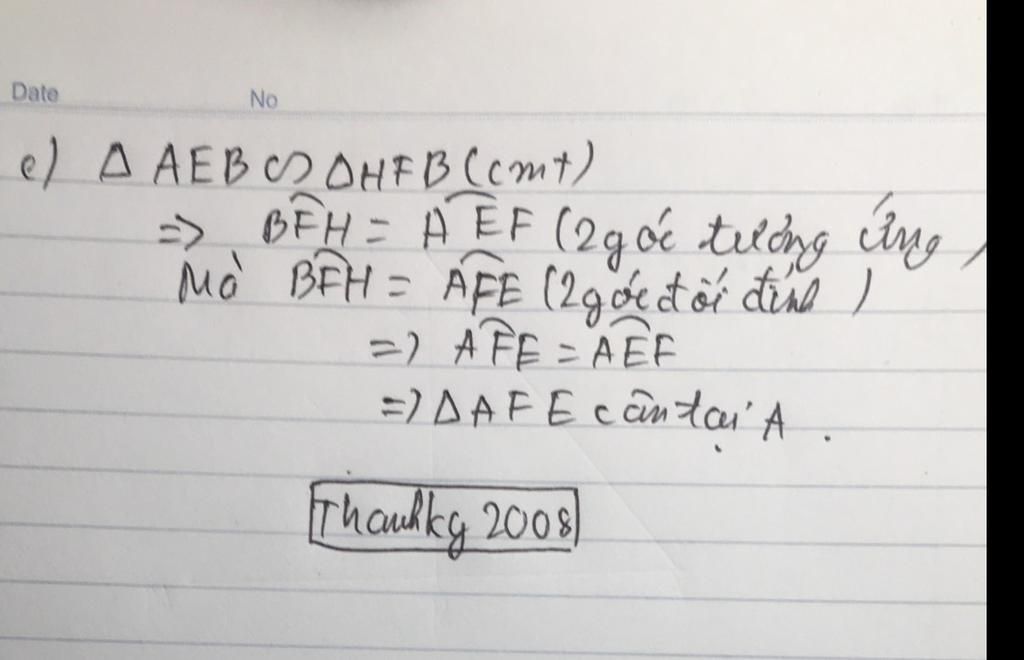 Date No
e) Δ AEB ∽ ΔHFB (cmt)
=> BFH = AEF (2 góc tương ứng)
Mà BFH = AFE (2 góc đối đỉnh)
=> AFE = AEF
=> Δ AFE cân tại A.
Thanhkg 2008